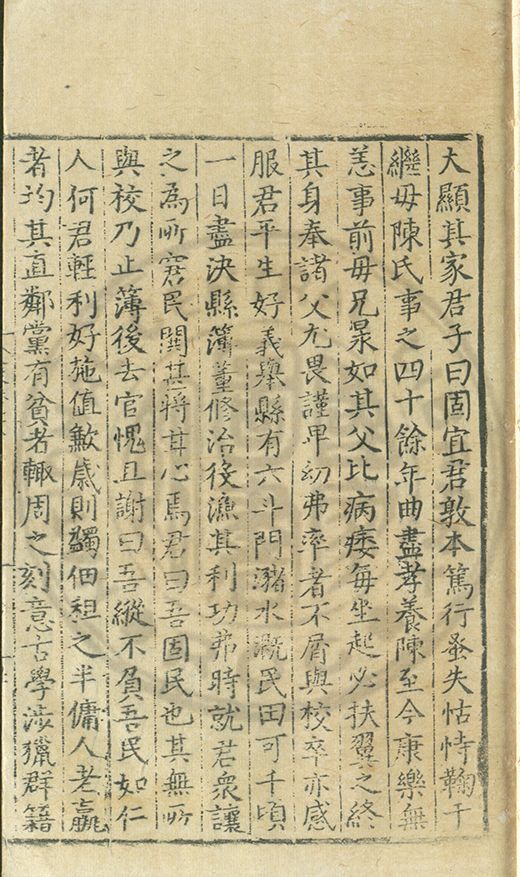 大顯其家君子曰固宜君敦本篤行蚤失怙恃鞠于
繼母陳氏事之四十餘年曲盡孝養陳至今康樂無
恙事前母兄泉如其父比病痿每坐起必扶翼之終
其身奉諸父尤畏謹卑幼弗率者不屑與校卒亦感
服君平生好義舉縣有六斗門瀦水溉民田可千頃
一日盡決縣簿董修治役漁其利功弗時就君衆讓
之爲所窘民閧甚將甘心焉君曰吾固民也其無所
與校乃止簿後去官愧且謝曰吾縱不負吾民如仁
人何君輕利好施值歉歲則蠲佃租之半傭人老羸
者均其直鄰黨有貧者輒周之刻意古學涉獵群籍